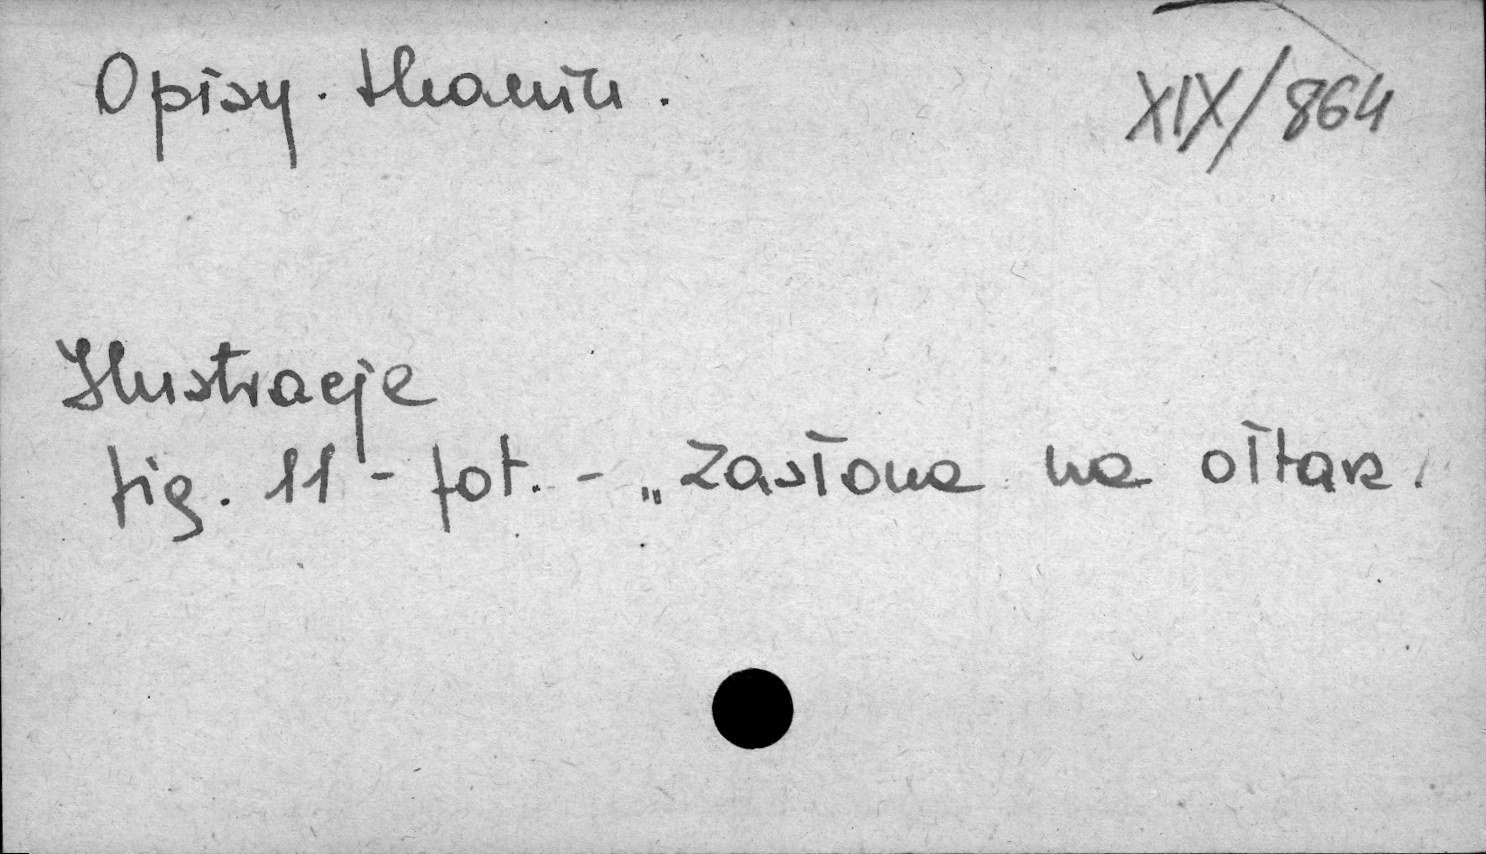 Opisy tkanin.
XIX/864
Ilustracje
fig. 11 - fot. - „Zasłona na ołtarz.